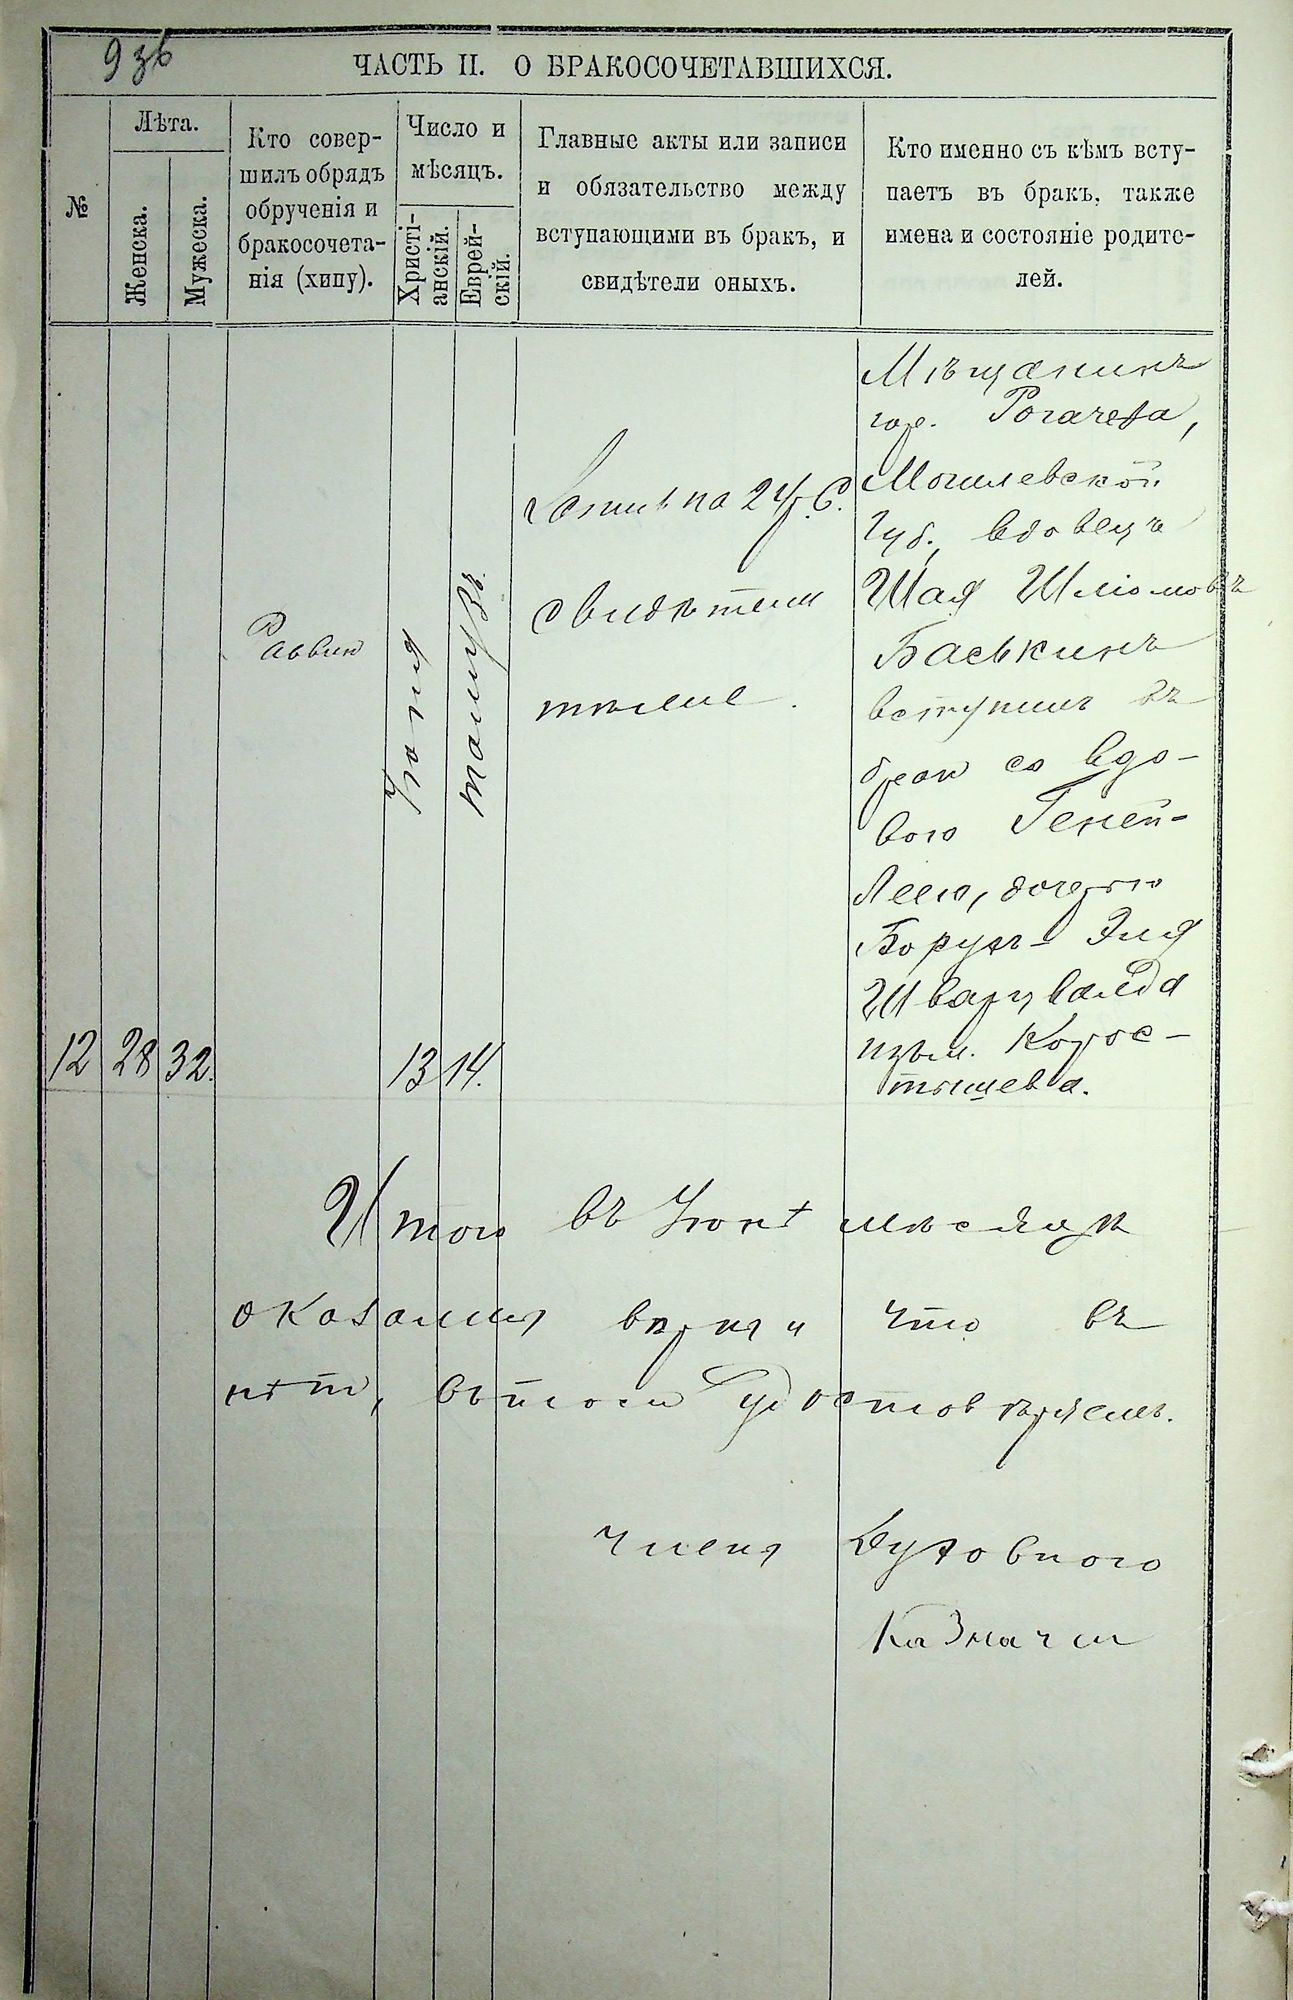 93б
ЧАСТЬ II. О БРАКОСОЧЕТАВШИХСЯ.
№
Лѣта.
Женска.
Мужеска.
Кто совер-
шилъ обрядъ
обрученія и
бракосочета-
нія (хипу).
Число и
мѣсяцъ.
Христі-
анскій.
Еврей-
скій.
Главные акты или записи
и обязательство между
вступающими въ бракъ, и
свидѣтели оныхъ.
Кто именно съ кѣмъ всту-
паетъ въ бракъ, также
имена и состояніе родите-
лей.
12
28
32.
Раввин
Іюня
13
тамузъ
14.
на 24 р. С.
свидѣтели
тѣже.
Мѣщанинъ
гор. Рогачева,
Могилевской
Губ., вдовецъ
Шая Шліомовъ
Баськинъ
вступилъ въ
брак со вдо-
вою Геней-
Леею, дочерью
Борухъ-Эля
Шварцвальда
изъ м. Корос-
тышева.
Итого въ Іюнѣ мѣсяцѣ
оказался вѣрна что въ
томъ удостовѣряемъ.
Члены Духовного
Казначей